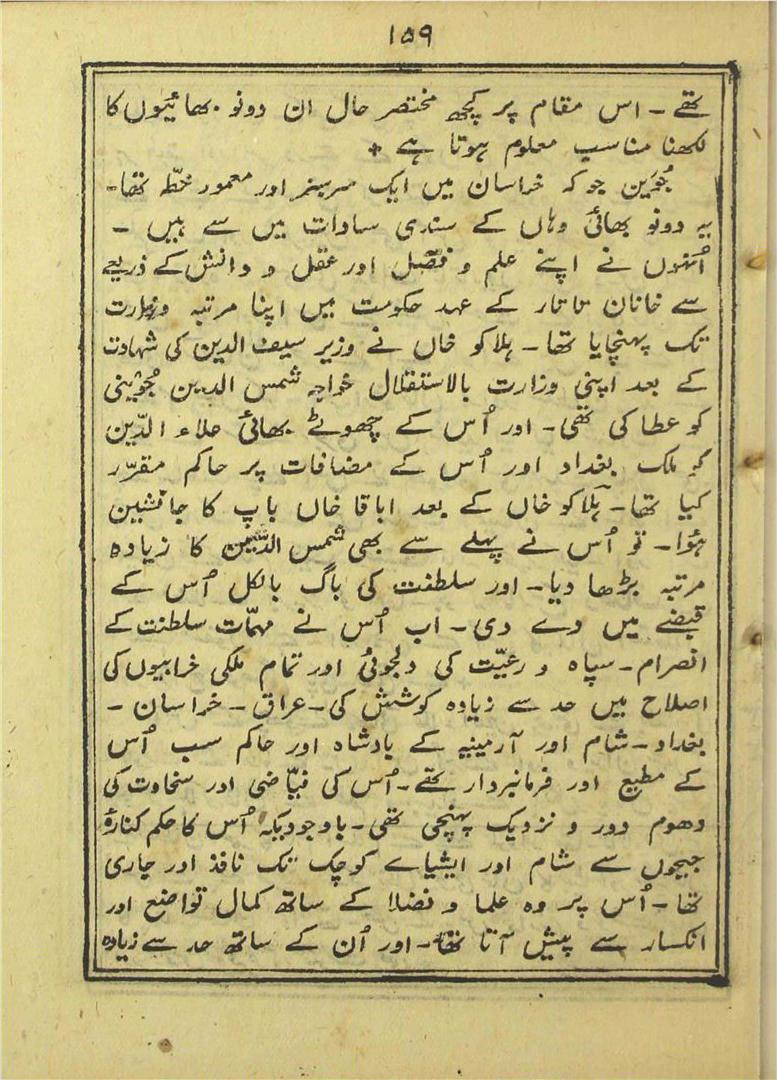 ۱۵۹
تھے ـ اس مقام پر کچھ مختصر حال ان دونو بھائیوں کا
لکھنا مناسب معلوم ہوتا ہے +
جُوَین جو کہ خراسان میں ایک سرسبز اور معمور خطّہ تھا ـ
یہ دونو بھائی وہاں کے سادات میں سے ہیں ـ
اُنہوں نے اپنے علم و فضل اور عقل و دانش کے ذریعے
سے خانان تاتار کے عہد حکومت میں اپنا مرتبہ وزارت
تک پہنچایا تھا ـ ہلاکو خاں نے وزیر سیف الدین کی شہادت
کے بعد اپنی وزارت بالاستقلال خواجہ شمس الدین جُوینی
کو عطا کی تھی ـ اور اُس کے چھوٹے بھائی علاء الدّین
کو ملک بغداد اور اُس کے مضافات پر حاکم مقرّر
کیا تھا ـ ہلاکو خاں کے بعد اباقا خاں باپ کا جانشین
ہُوا ـ تو اُس نے پہلے سے بھی شمس الدّین کا زیادہ
مرتبہ بڑھا دیا ـ اور سلطنت کی باگ بالکل اُس کے
قبضے میں دے دی ـ اب اُس نے مہمّات سلطنت کے
انصرام ـ سپاہ و رعیّت کی دلجوئی اور تمام ملکی خرابیوں کی
اصلاح میں حد سے زیادہ کوشش کی ـ عراق ـ خراسان ـ
بغداد ـ شام اور آرمینیہ کے بادشاہ اور حاکم سب اُس
کے مطیع اور فرمانبردار تھے ـ اُس کی فیّاضی اور سخاوت کی
دھوم دور و نزدیک پہنچی تھی ـ باوجودیکہ اُس کا حکم کنارۂ
جیحوں سے شام اور ایشیاے کوچک تک نافذ اور جاری
تھا ـ اُس پر وہ علما و فضلا کے ساتھ کمال تواضع اور
انکسار سے پیش آتا تھا ـ اور اُن کے ساتھ حد سے زیادہ